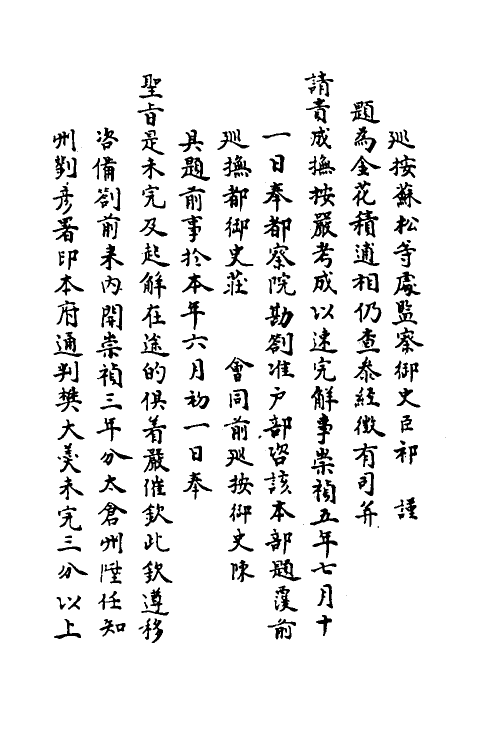 廵按蘇松等處監察御史臣祁　謹
題為金花積逋相仍查叅經徵有司并
請責成撫按嚴考成以速完解事崇禎五年七月十
一日奉都察院勘劄准户部咨該本部題覆前
廵撫都御史莊　會同前廵按御史陳
具題前事於本年六月初一日奉
聖旨是未完及起解在途的俱着嚴催欽此欽遵移
咨備劄前来内開崇禎三年分太倉州陞任知
州劉彦署印本府通判樊大羙未完三分以上